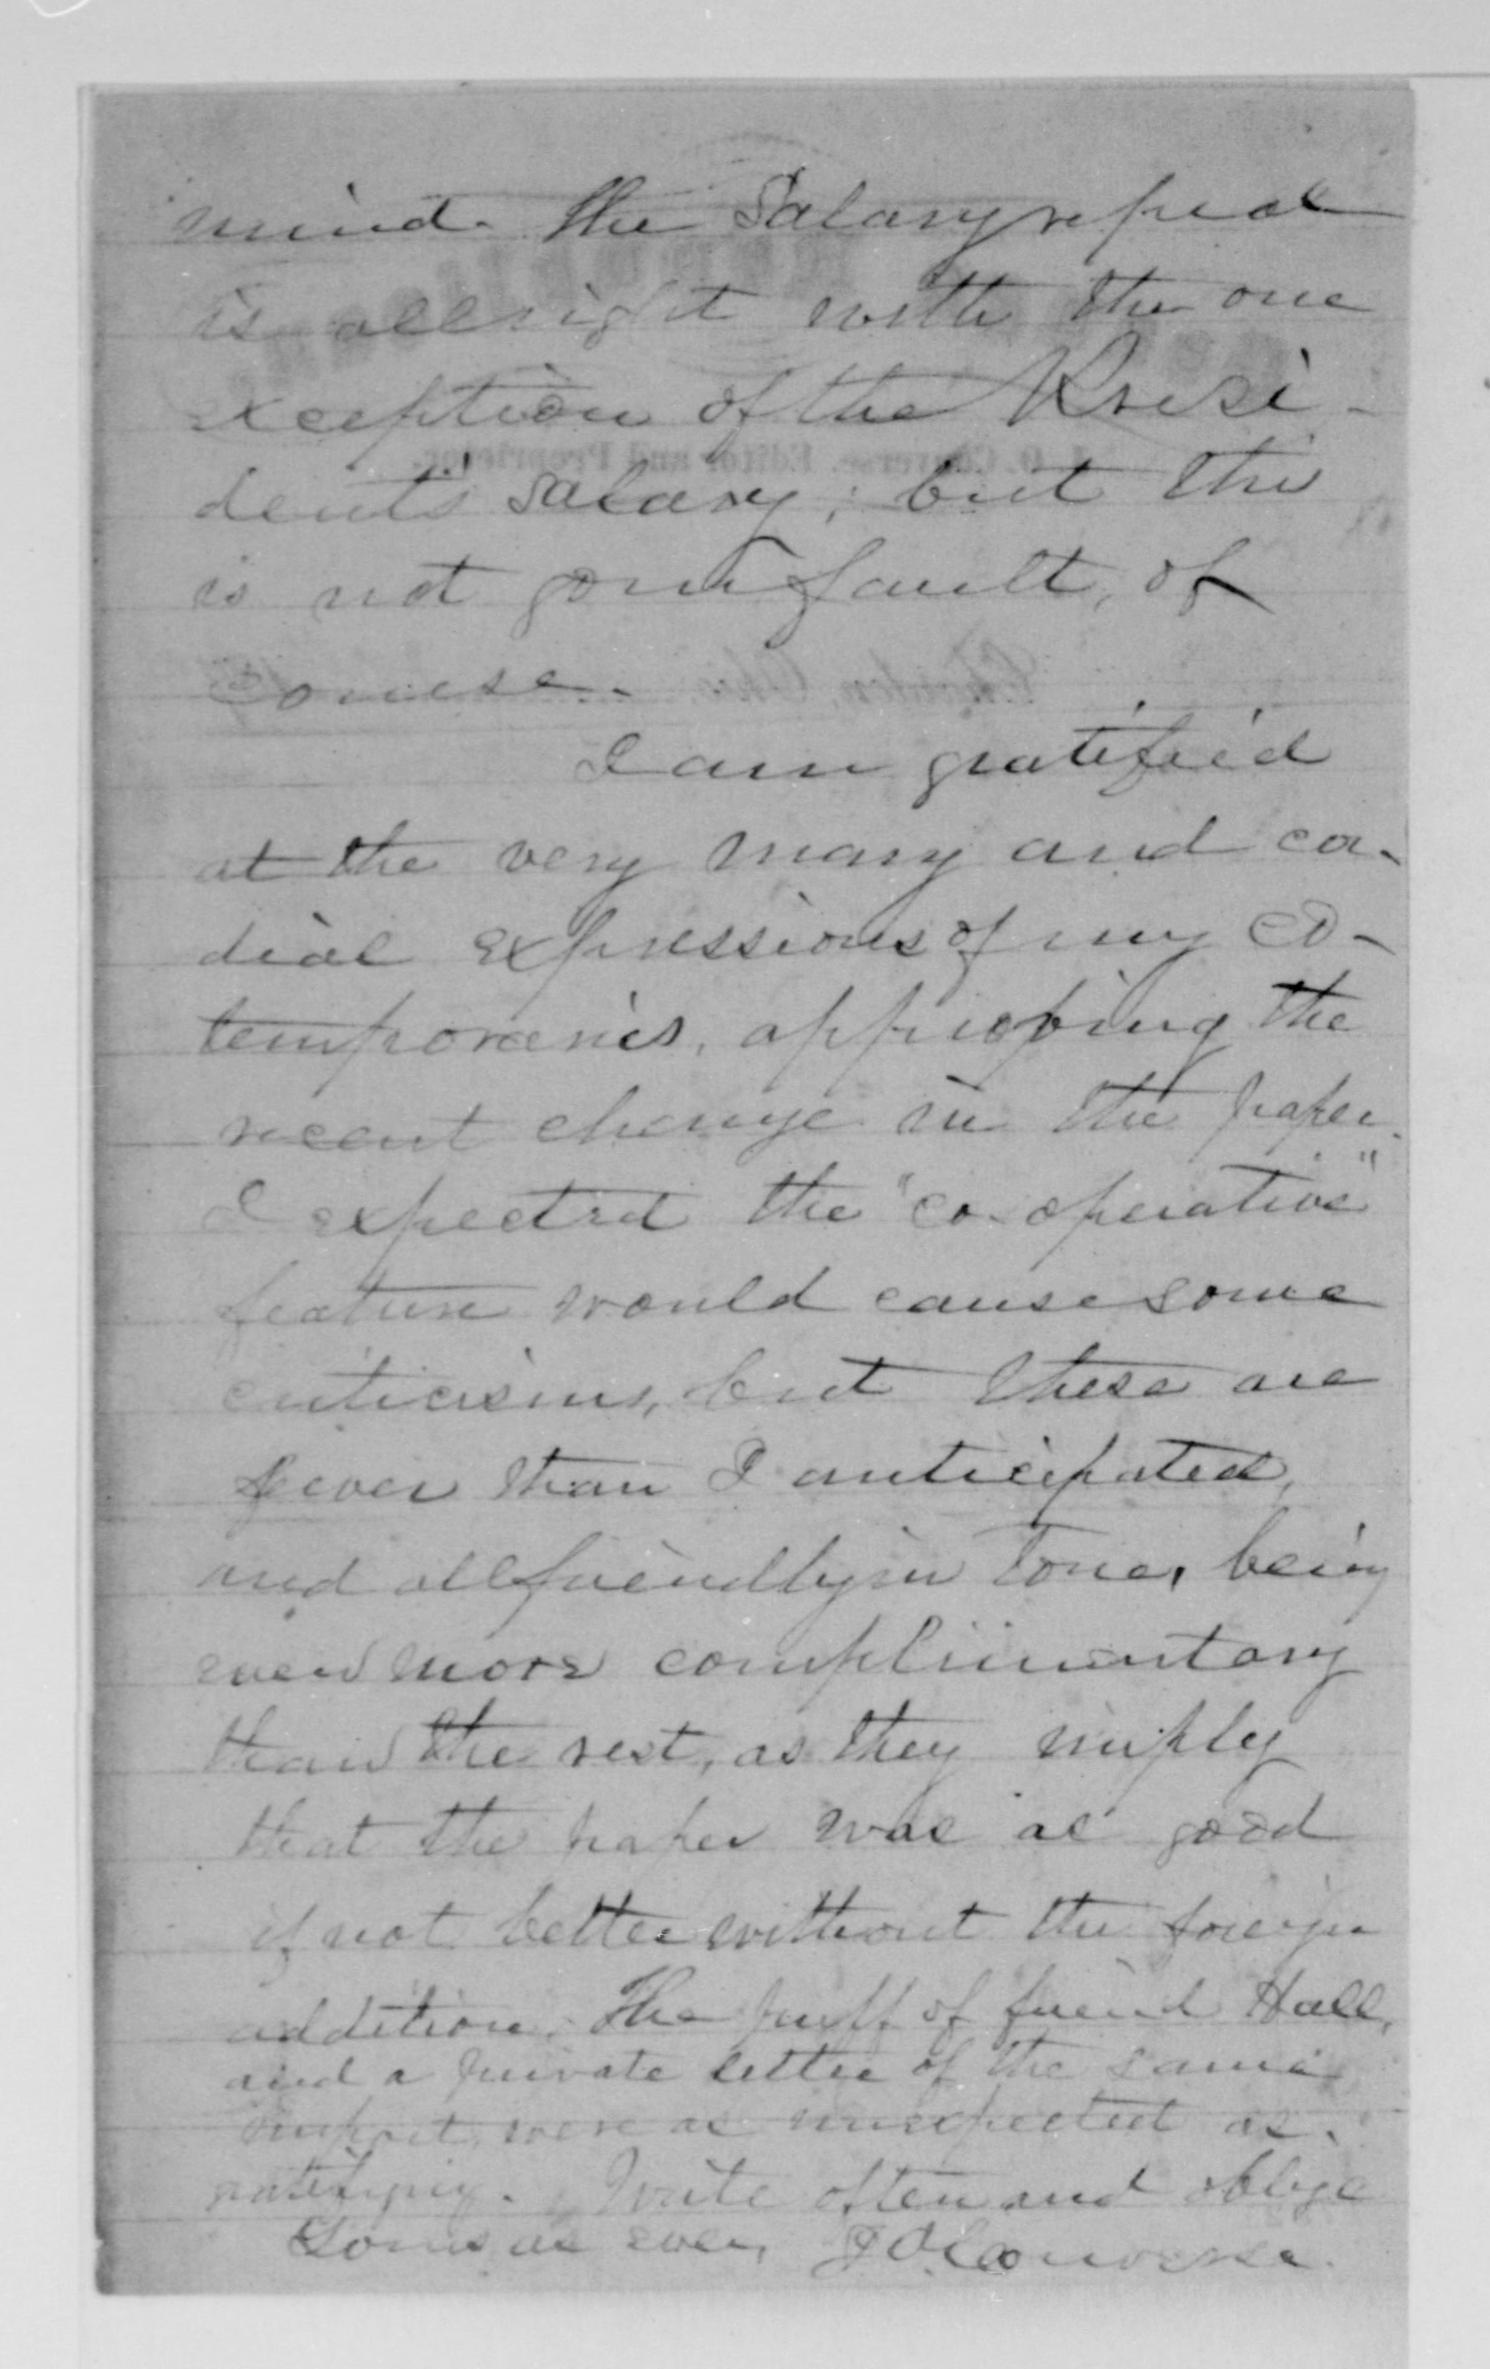 mind. The Salary repeal
is all right with the one
exception of the Presi-
dent's salary; but this
is not your fault, of
course.
I am gratified
at the very many and cor-
dial expressions of my co-
temporaries, approving the
recent change in the paper.
I expected the "co-operative"
feature would cause some
criticisms, but these are
fewer than I anticipated,
and all friendly in tone, being
even more complimentary
than the rest, as they imply
that the paper was as good
if not better without the foreign
addition. The puff of friend Hall,
and a private letter of the same
import, were as unexpected as
gratifying. Write often and oblige
Yours as ever, J O Converse.
J. O. Converse, Editor and Proprietor.
Chardon, Ohio,